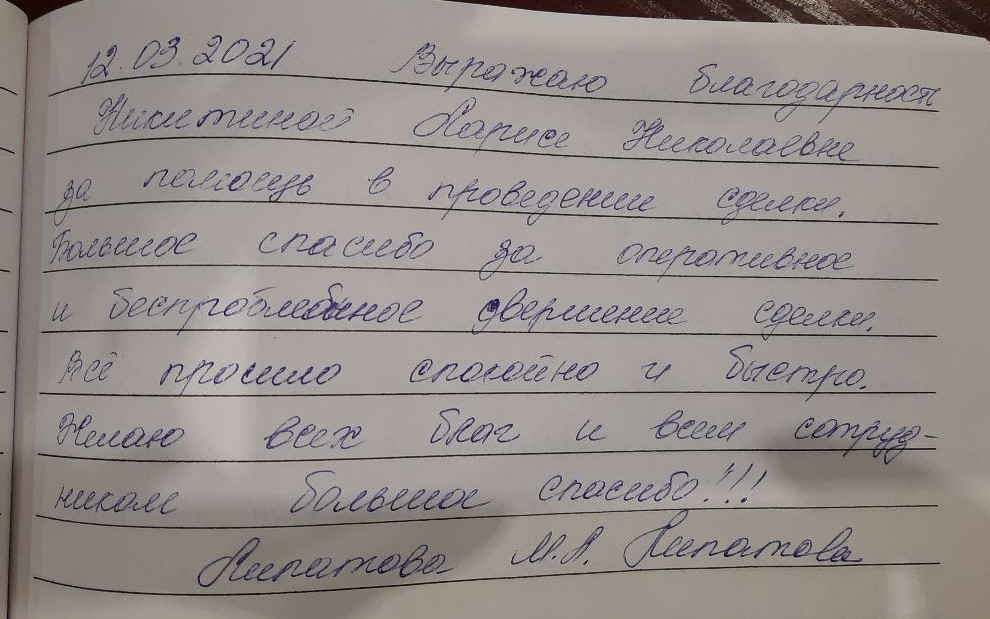 12.03.2021 Выражаю благодарность
Никитиной Ларисе Николаевне
за помощь в проведении сделки.
Большое спасибо за оперативное
и беспроблемное свершение сделки.
Всё прошло спокойно и быстро.
Желаю всех благ и всем сотруд-
никам большое спасибо!!!
Липатова М.А. Липатова